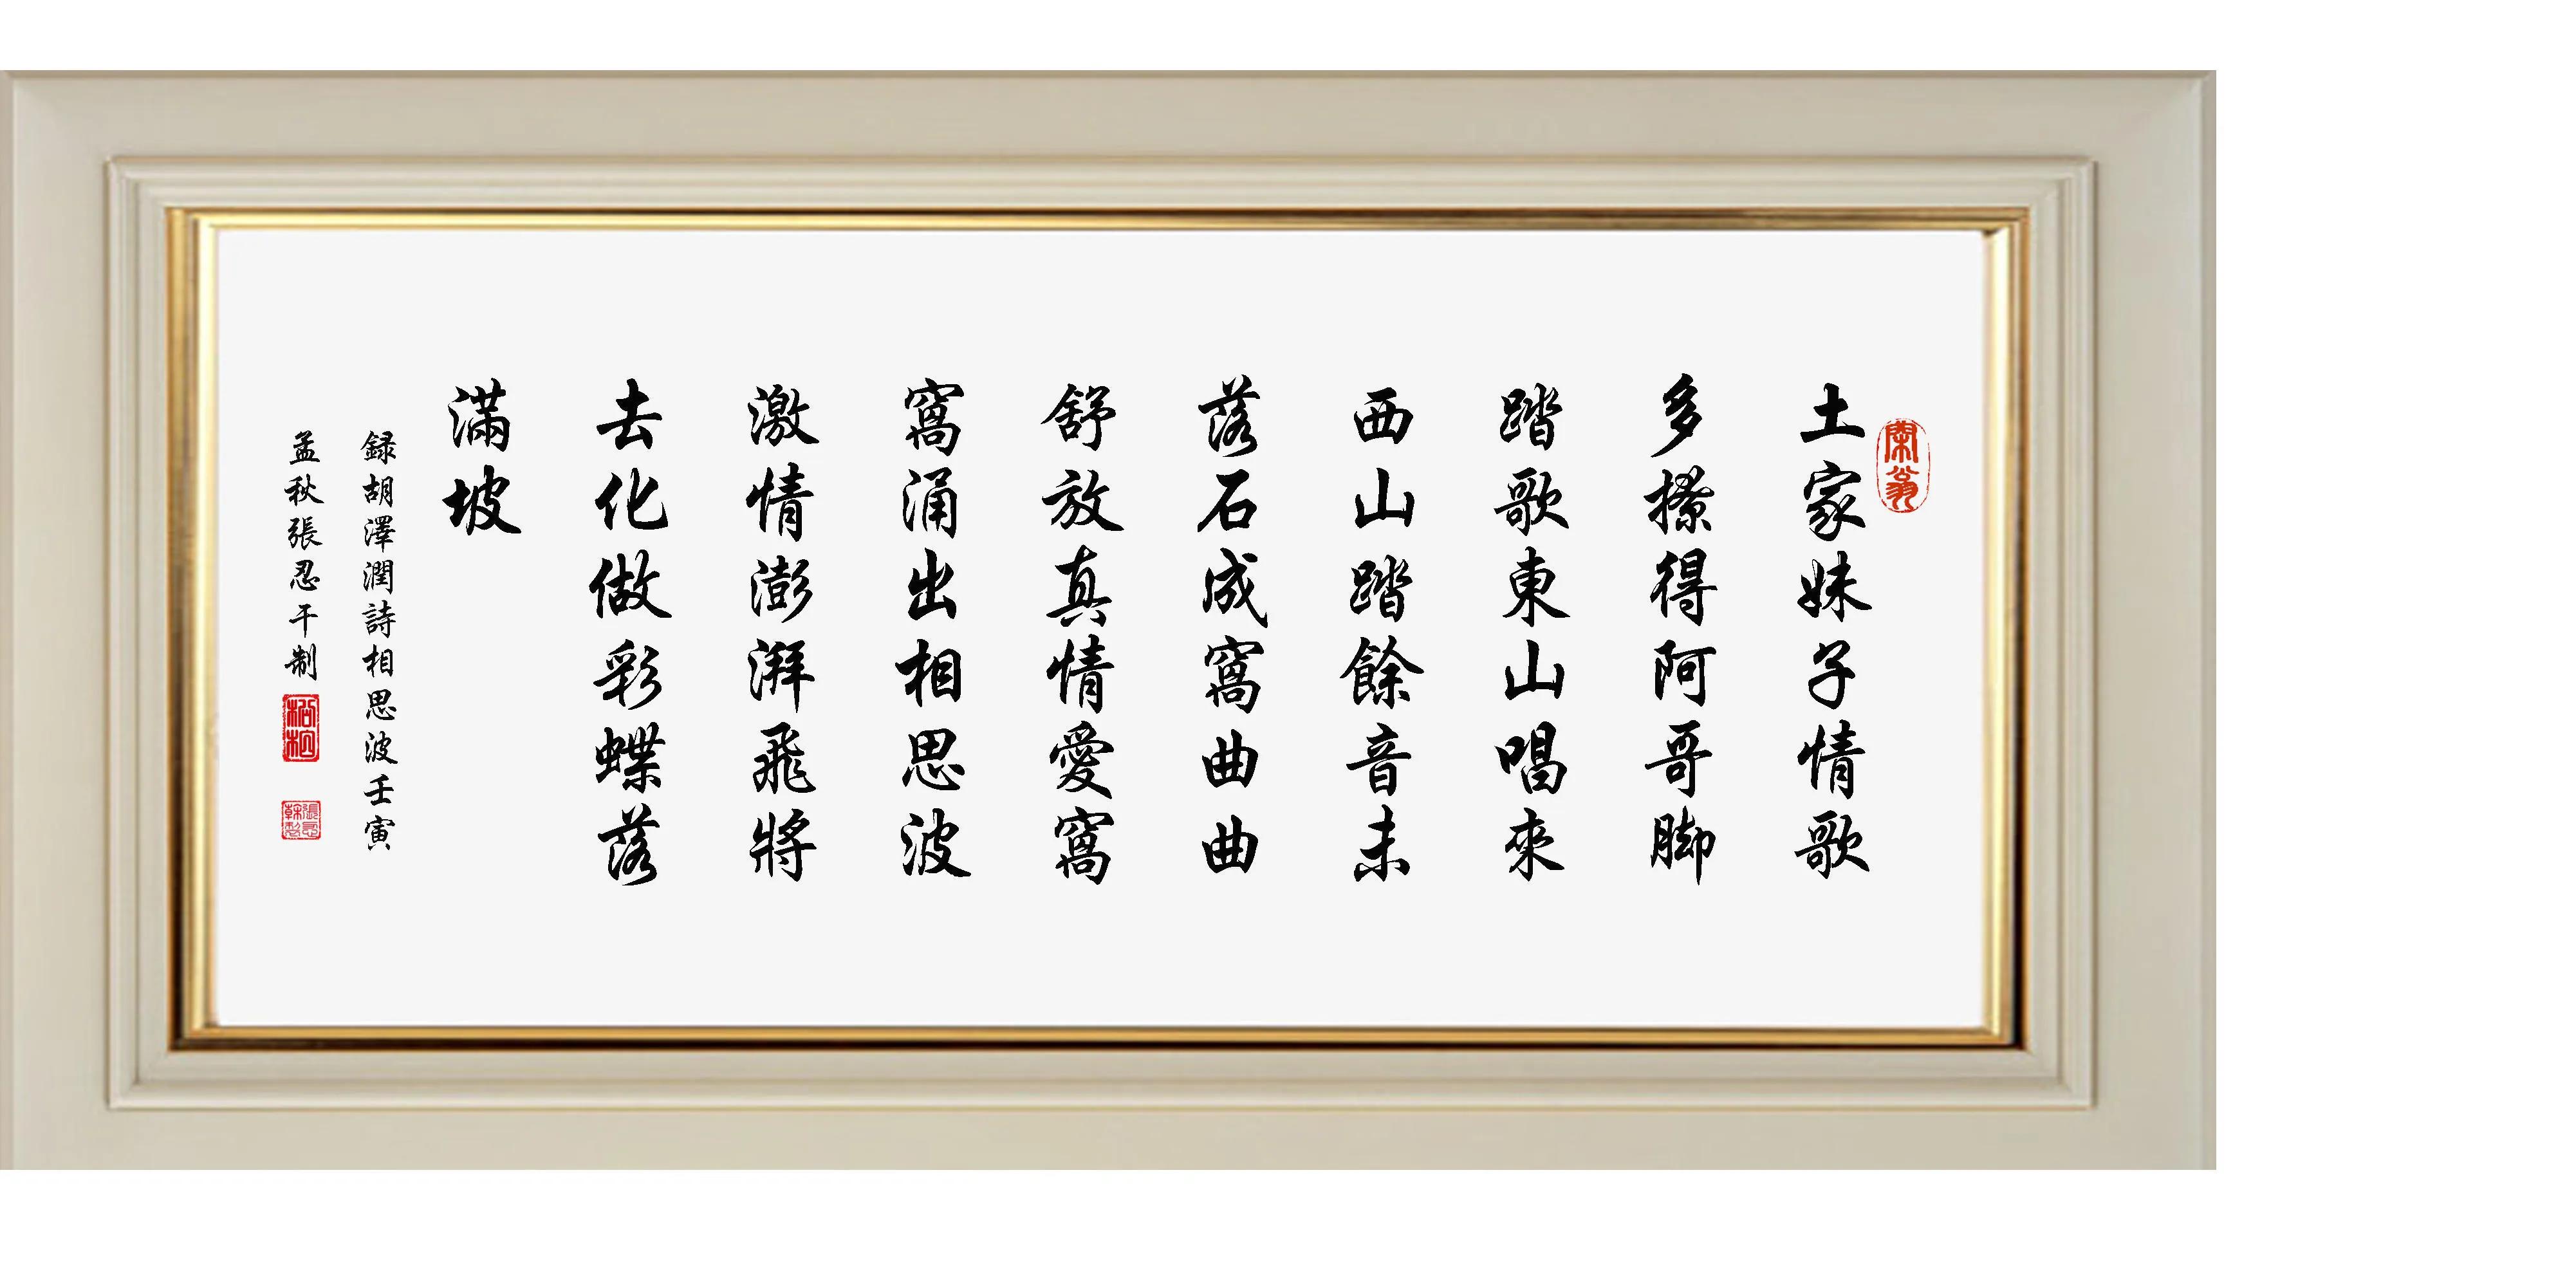 土家妹子情歌
多撩得阿哥脚
踏歌東山唱來
西山踏餘音未
落石成窩曲曲
舒放真情愛窩
窩涌出相思波
激情澎湃飛將
去化做彩蝶落
滿坡
録胡澤潤詩相思波壬寅
孟秋張忍干制